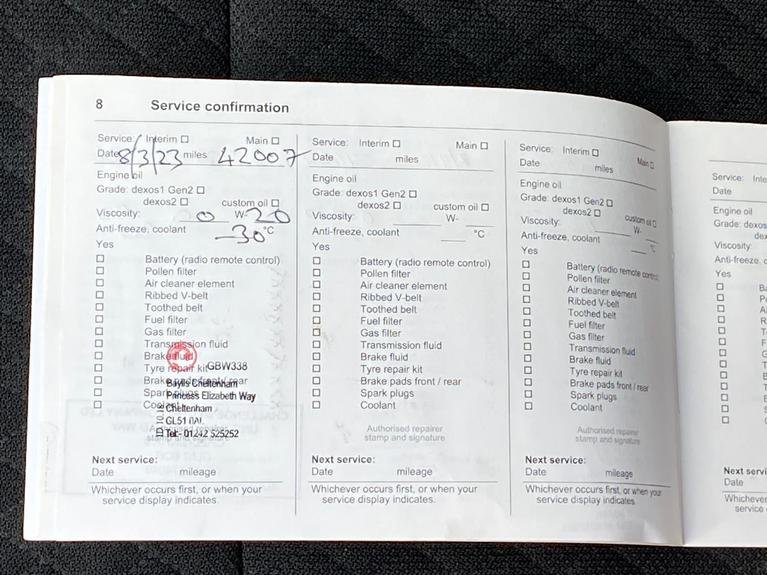 8 Service confirmation
Service: Interim ☐ Main ☐
Date 8/3/23 miles 42007
Engine oil
Grade: dexos1 Gen2 ☐
dexos2 ☐ custom oil ☐
Viscosity: 0 W- 20
Anti-freeze, coolant -30 °C
Yes
☐ Battery (radio remote control)
☐ Pollen filter
☐ Air cleaner element
☐ Ribbed V-belt
☐ Toothed belt
☐ Fuel filter
☐ Gas filter
☐ Transmission fluid
☐ Brake fluid
☐ Tyre repair kit
☐ Brake pads front / rear
☐ Spark plugs
☐ Coolant
GBW338
Baylis Cheltenham
Princess Elizabeth Way
Cheltenham
GL51
Tel:- 01242 525252
Next service:
Date mileage
Whichever occurs first, or when your
service display indicates.
Service: Interim ☐ Main ☐
Date miles
Engine oil
Grade: dexos1 Gen2 ☐
dexos2 ☐ custom oil ☐
Viscosity: W-
Anti-freeze, coolant °C
Yes
☐ Battery (radio remote control)
☐ Pollen filter
☐ Air cleaner element
☐ Ribbed V-belt
☐ Toothed belt
☐ Fuel filter
☐ Gas filter
☐ Transmission fluid
☐ Brake fluid
☐ Tyre repair kit
☐ Brake pads front / rear
☐ Spark plugs
☐ Coolant
Authorised repairer
stamp and signature
Next service:
Date mileage
Whichever occurs first, or when your
service display indicates.
Service: Interim ☐ Main ☐
Date miles
Engine oil
Grade: dexos1 Gen2 ☐
dexos2 ☐ custom oil ☐
Viscosity: W-
Anti-freeze, coolant °C
Yes
☐ Battery (radio remote control)
☐ Pollen filter
☐ Air cleaner element
☐ Ribbed V-belt
☐ Toothed belt
☐ Fuel filter
☐ Gas filter
☐ Transmission fluid
☐ Brake fluid
☐ Tyre repair kit
☐ Brake pads front / rear
☐ Spark plugs
☐ Coolant
Authorised repairer
stamp and signature
Next service:
Date mileage
Whichever occurs first, or when your
service display indicates.
Service: Inte
Date
Engine oil
Grade: dexos
Viscosity:
Anti-freeze, c
Yes
Next servi
Date
Whichever
service